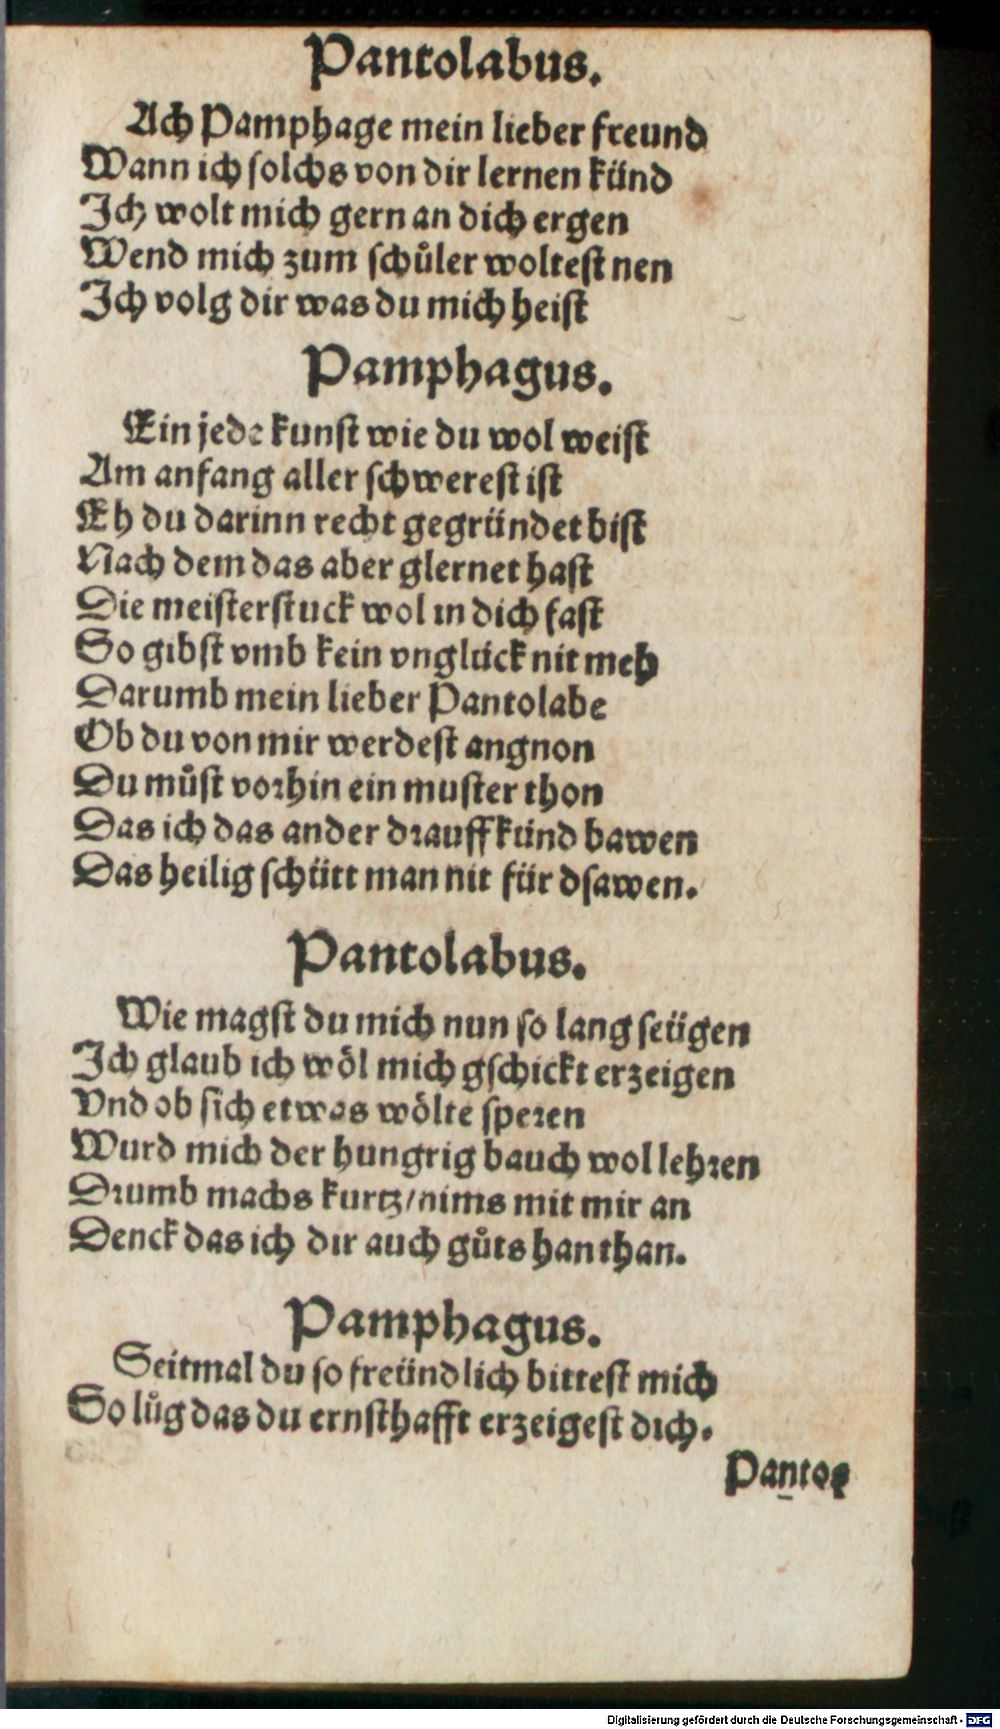 Pantolabus.
Ach Pamphage mein lieber freund
Wann ich solchs von dir lernen künd
Ich wolt mich gern an dich ergen
Wend mich zum schůler woltest nen
Ich volg dir was du mich heist
Pamphagus.
Ein jede kunst wie du wol weist
Am anfang aller schwerest ist
Eh du darinn recht gegründet bist
Nach dem das aber glernet hast
Die meisterstuck wol in dich fast
So gibst vmb kein vnglück nit meh
Darumb mein lieber Pantolabe
Ob du von mir werdest angnon
Du můst vorhin ein muster thon
Das ich das ander drauff künd bawen
Das heilig schütt man nit für dsawen.
Pantolabus.
Wie magst du mich nun so lang seügen
Ich glaub ich wöl mich gschickt erzeigen
Vnd ob sich etwas wölte speren
Wurd mich der hungrig bauch wol lehren
Drumb machs kurtz/nims mit mir an
Denck das ich dir auch gůts han than.
Pamphagus.
Seitmal du so freündlich bittest mich
So lůg das du ernsthafft erzeigest dich.
Panto⸗
Digitalisierung gefördert durch die Deutsche Forschungsgemeinschaft - DFG